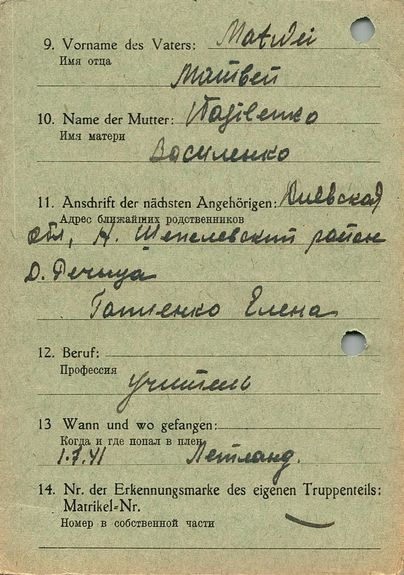 9. Vorname des Vaters: Matwei
Имя отца
Матвей
10. Name der Mutter: Wasilenko
Имя матери
Василенко
11. Anschrift der nächsten Angehörigen: Киевская
Адрес ближайших родственников
обл, Н. Шепелевский район
д. Речица
Елена
12. Beruf:
Профессия
учитель
13 Wann und wo gefangen:
Когда и где попал в плен
1.7.41 Летланд.
14. Nr. der Erkennungsmarke des eigenen Truppenteils:
Matrikel-Nr.
Номер в собственной части
—